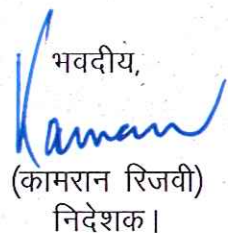 भवदीय,
Kamran
(कामरान रिजवी)
निदेशक।